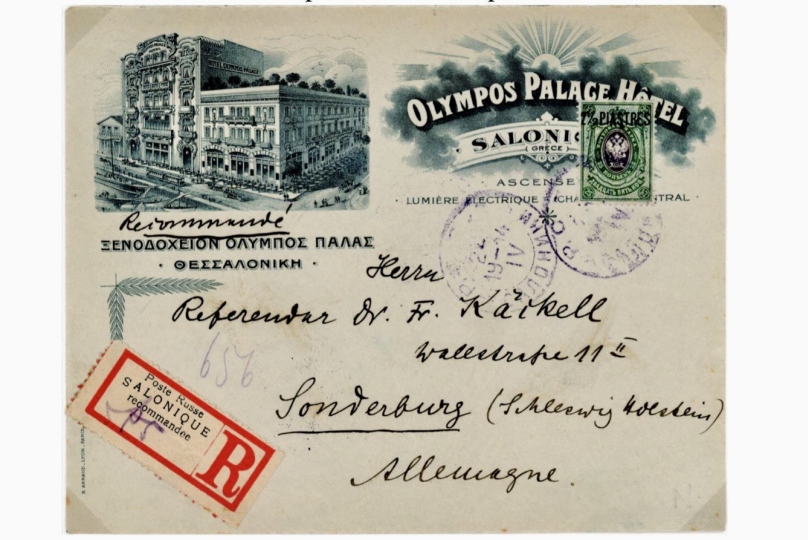 HOTEL OLYMPOS PALACE
OLYMPOS PALACE HÔTEL
SALONI
(GRÈCE)
ASCENSE
LUMIÈRE ÉLECTRIQUE CHA NTRAL
7½ PIASTRES
Recommandé
ΞΕΝΟΔΟΧΕΙΟΝ ΟΛΥΜΠΟΣ ΠΑΛΑΣ
· ΘΕΣΣΑΛΟΝΙΚΗ ·
24
19-14
IV
Herrn
Referendar Dr. Fr. Kackell
Wallstraße 11 II
656
Sonderburg (Schleswig Holstein)
Allemagne.
Poste Russe
SALONIQUE
recommandée
R